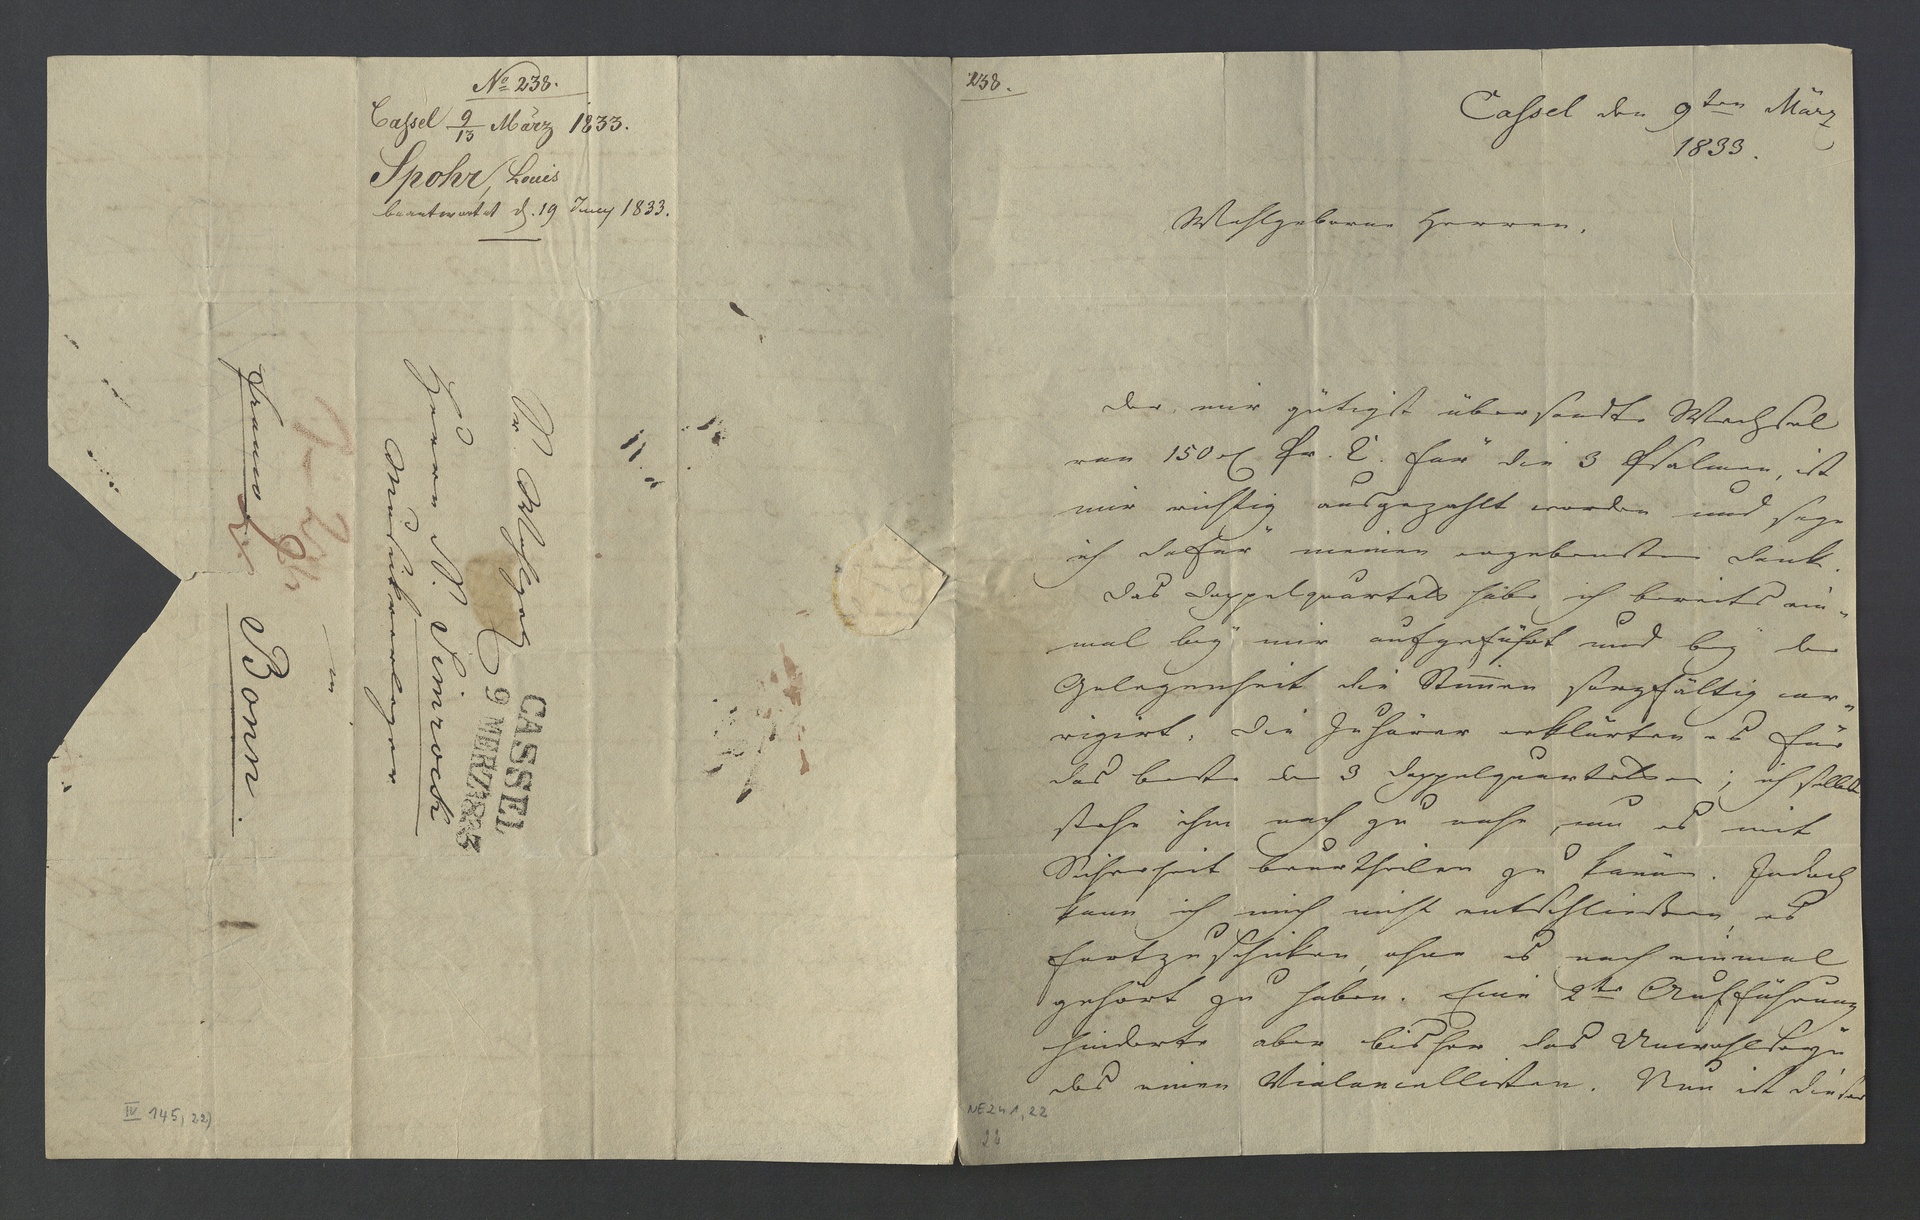 No 238.
Cassel 9/13 März 1833.
Spohr, Louis
beantwortet d. 19 Juny 1833.
Sr. Wohlgeb.
Herrn N. Simrock
Musikverleger
in
Bonn.
franco
CASSEL
9 MERZ 1833
IV 145, 22)
238.
Cassel den 9ten März
1833.
Wohlgeborne Herren,
Der mir gütigst übersandte Wechsel
von 150 Pr. C. für die 3 Psalmen, ist
mir richtig ausgezahlt worden und sage
ich dafür meinen ergebensten Dank.
Das Doppelquartett habe ich bereits ein-
mal bey mir aufgeführt und bey der
Gelegenheit die Stimmen sorgfältig cor-
rigirt. Die Zuhörer erklärten es für
das beste der 3 Doppelquartetten; ich selbst
stehe ihm noch zu nahe, um es mit
Sicherheit beurtheilen zu können. Jedoch
kann ich mich nicht entschliessen, es
fortzuschicken, ohne es noch einmal
gehört zu haben. Eine 2te Aufführung
hinderte aber bisher das Unwohlseyn
des einen Violoncellisten. Nun ist dieser
NE 241, 22
22